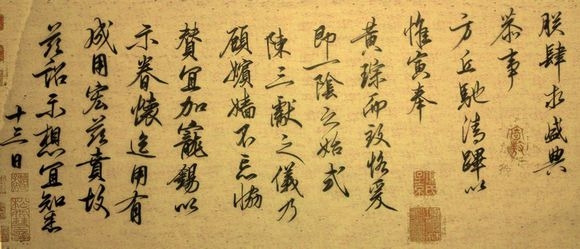 朕肆求盛典
恭事
方丘馳清蹕以
惟寅奉
黃琮而致恪爰
即一陰之始式
陳三獻之儀乃
顧嬪嬙不忘協
贊宜加寵錫以
示眷懷迄用有
成用宏茲賁故
茲詔示想宜知悉
十三日